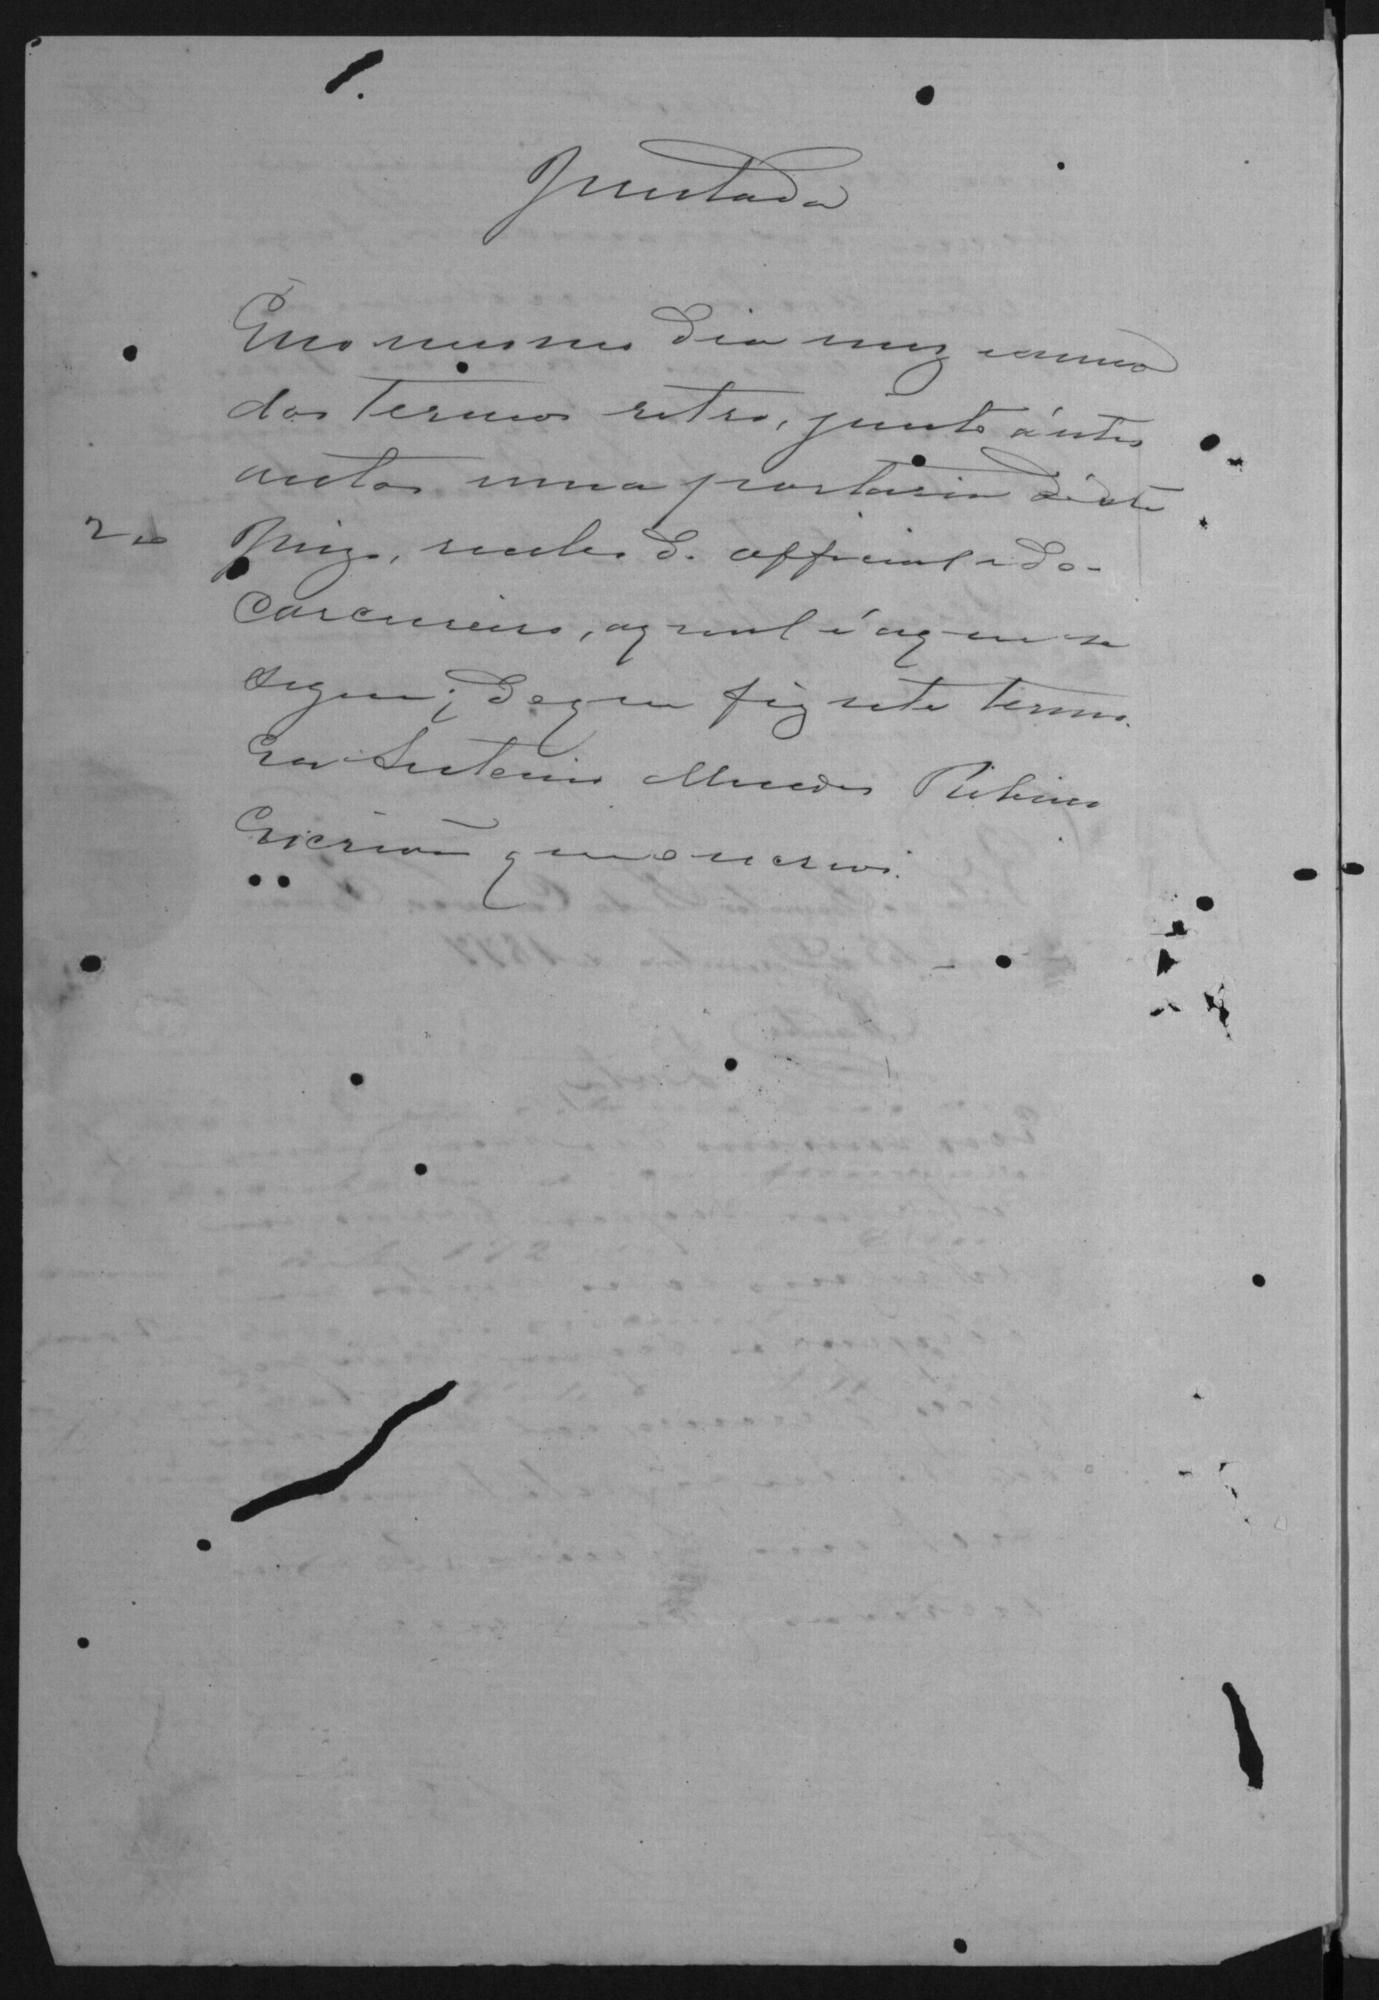 Juntada
E no mesmo dia mez e anno
dos termos retro, junto á estes
autos uma portaria d'este
Juizo, recibo do official e do
Carcereiro, a qual é a que se
segue; do que fiz este termo.
Eu Antonio Mendes Ribeiro
Escrivão que o escrevi.